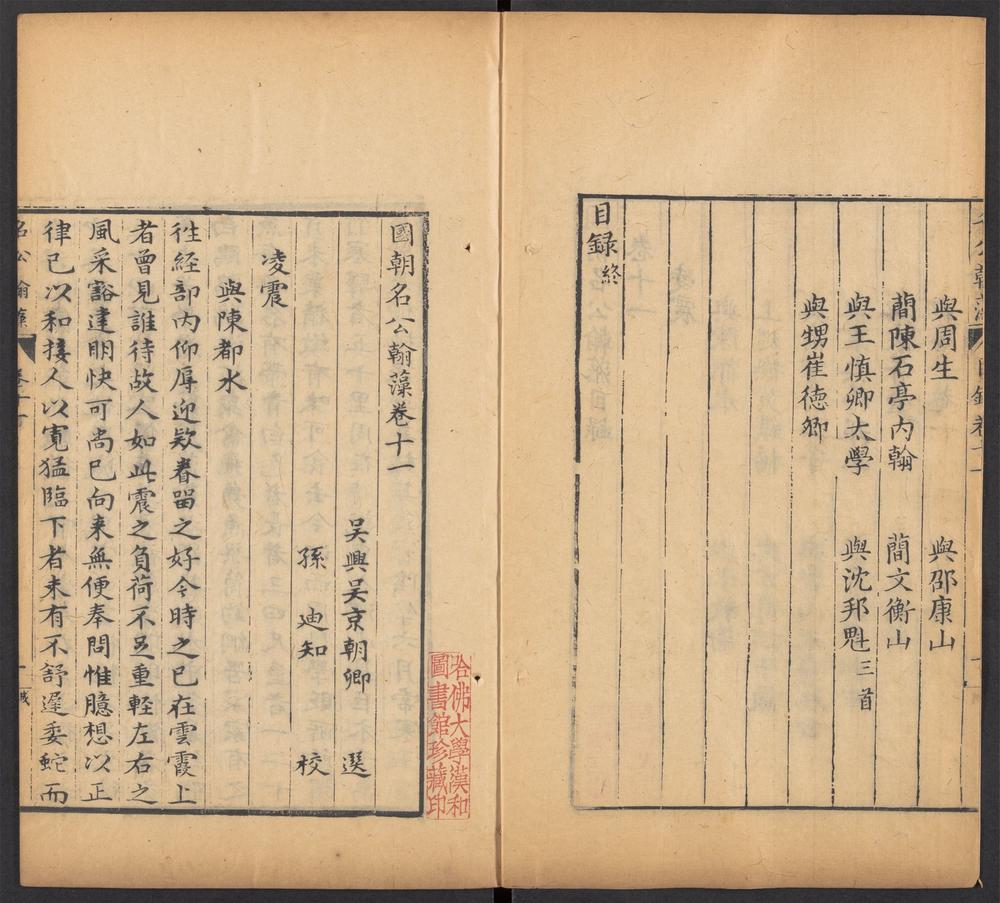 與周生　與邵康山
蘭陳石亭內翰　蘭文衡山
與王慎卿太學　與沈邦魁三首
與甥崔德卿
目録終
國朝名公翰藻卷十一
吴興吴京朝卿　選
孫　廸知　校
凌震
與陳都水
徃経部內仰辱迎欵眷畱之好令時之已在雲霞上
者曾見誰待故人如此震之負荷不足重軽左右之
風采豁達明快可尚已向来無便奉問惟臆想以正
律己以和接人以寛猛臨下者未有不舒遲委蛇而
哈佛大學漢和
圖書館珍藏印